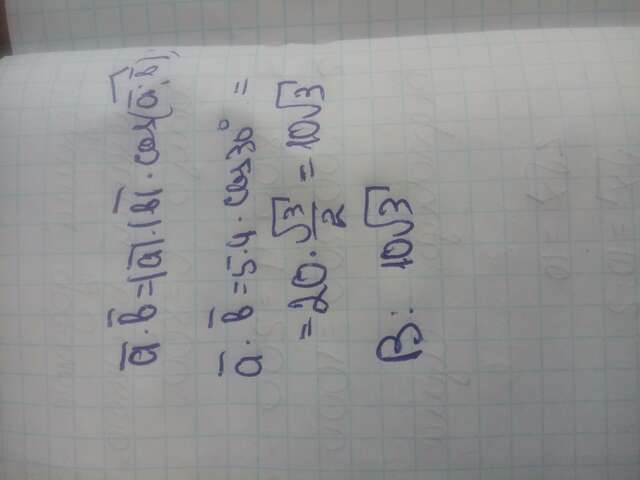 a̅ · b̅ = |a̅| · |b̅| · cos(a̅; b̅)
a̅ · b̅ = 5 · 4 · cos 30° =
= 20 · √3/2 = 10√3
В: 10√3